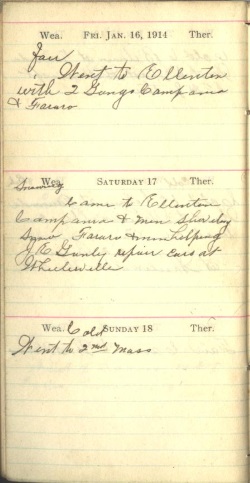 Wea. FRI. JAN. 16, 1914 Ther.
Fair
Went to Ellenton
with 2 Gangs Campana
& Fararo
Wea. SATURDAY 17 Ther.
Came to Ellenton
Campana & men
Fararo & men helping
repair cars at
Wheelerville
Wea. Cold SUNDAY 18 Ther.
Went to 2nd Mass